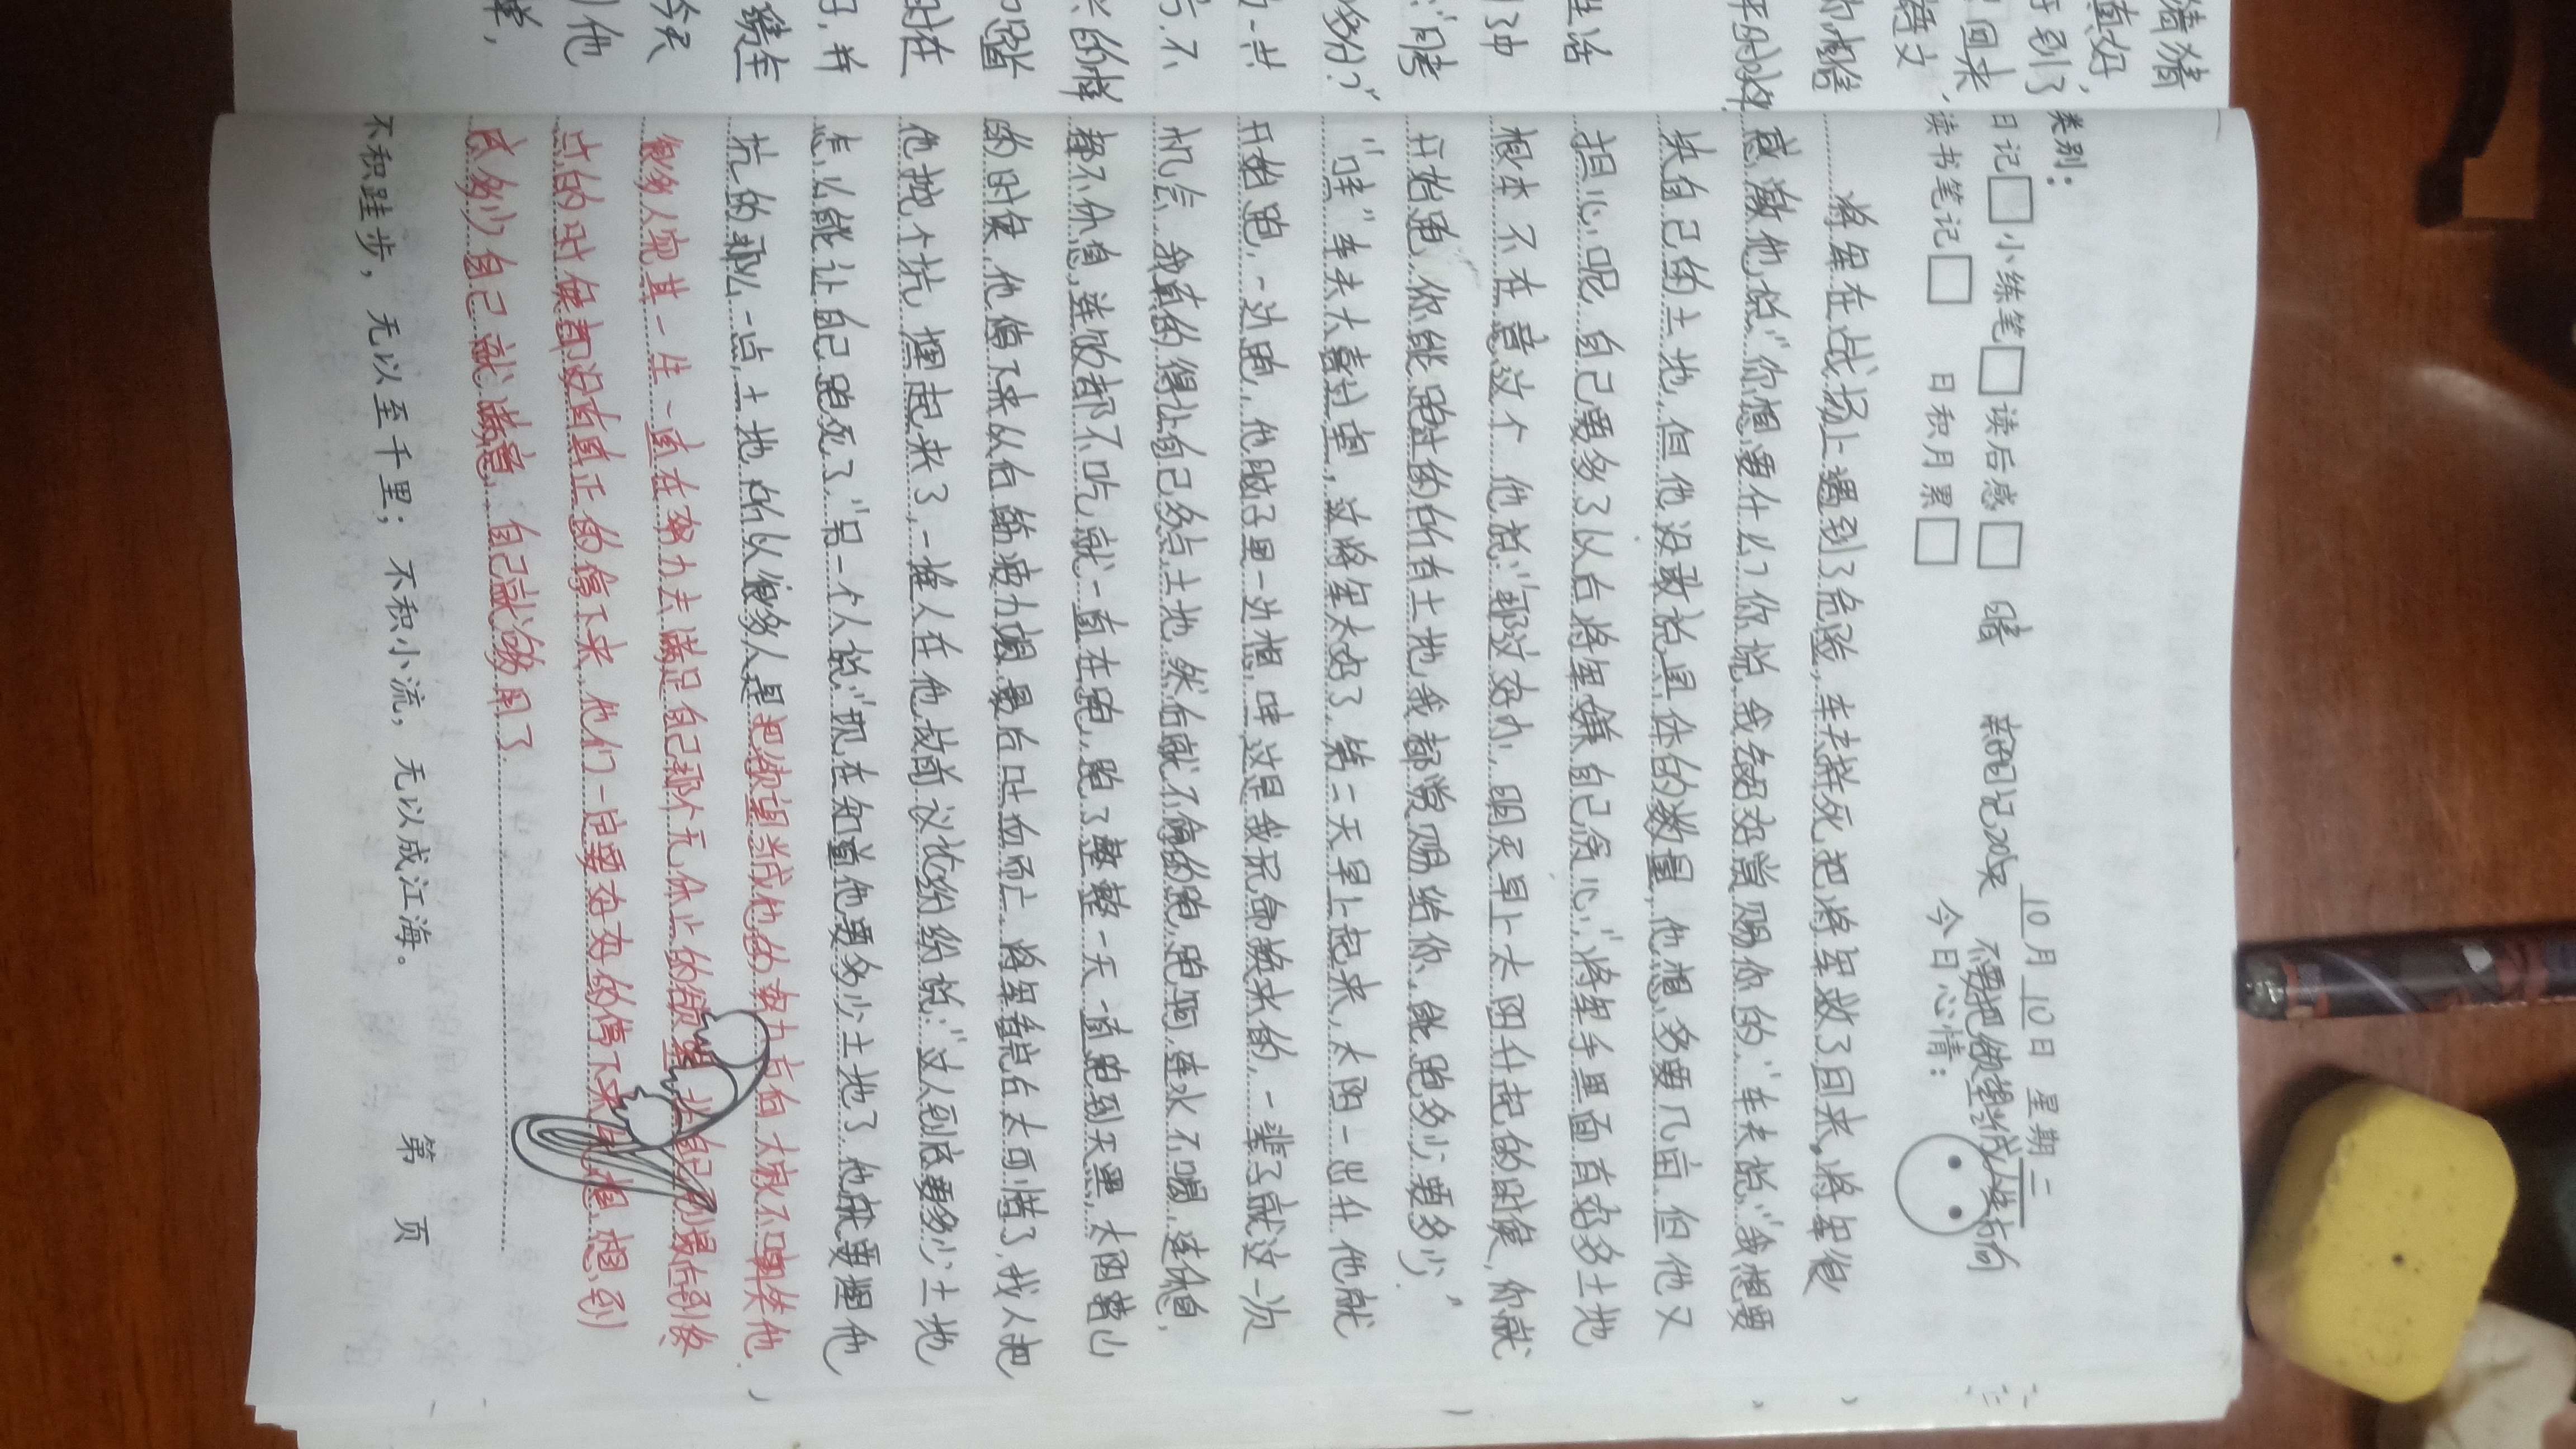 猜猜
真好,
到了
回来
语文
你相信
平的好
生活
了中
:"问考
多分?"
的一共
行,不
兴的样
时在
骑车
今天
他
类别:
日记□ 小练笔□ 读后感□ 晴 10月10日 星期二
读书笔记□ 日积月累□ 今日心情:
不要把欲望当成人生方向
将军在战场上遇到了危险,车夫拼死把将军救了回来。将军很
感激他,说:"你想要什么?你说,我给好好赏赐你的。"车夫说:"我想要
块自己的土地,但他没敢说具体的数量,他想多要几亩,但他又
担心呢,自己要多了以后将军嫌自己贪心,"将军手里面有好多土地
根本不在意这个,他说:"那这好办,明天早上太阳升起的时候,你就
开始跑,你能跑过的所有土地,我都赏赐给你,能跑多少要多少,"
"哇"车夫大喜过望,这将军太好了,第二天早上起来,太阳一出升他就
开始跑,一边跑,他脑子里一边想,哇这是我玩命换来的,一辈子就这一次
机会,我真的得让自己多占土地,然后就不停的跑,跑啊,连水不喝,连休息,
都不休息,连饭都不吃,就一直在跑,跑了整整一天一直跑到天黑,太阳落山
的时候,他停下来以后筋疲力竭,最后吐血而亡,将军知后太可惜了,找人把
他挖个坑,埋起来了,一堆人在他坟前议论纷纷说:"这人到底要多少土地
怎么能让自己跑死了"另一个人说:"现在知道他要多少土地了,他就要埋他
坑的那么一点土地,所以很多人是把欲望当成他的努力方向,大家不要笑他,
很多人穷其一生一直在努力去满足自己那个无休止的欲望,
点的时候都没有真正的停下来,他们一定要好好的停下来,想想到
底多少自己就满意,自己就够用了.
不积跬步,无以至千里;不积小流,无以成江海。 第 页